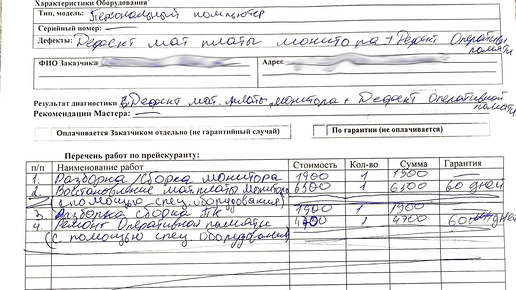 Характеристики Оборудования
Тип, модель: Персональный компьютер
Серийный номер: —
Дефекты: Дефект мат платы монитора + Дефект Оперативн памяти
ФИО Заказчика Адрес
Результат диагностики Дефект мат. платы монитора + Дефект Оперативной памяти
Рекомендации Мастера: —
Оплачивается Заказчиком отдельно (не гарантийный случай) По гарантии (не оплачивается)
Перечень работ по прейскуранту:
п/п Наименование работ Стоимость Кол-во Сумма Гарантия
1. Разборка/Сборка монитора 1900 1 1900
2. Восстановление мат.платы монитора 6500 1 6500 60 дней
(с помощью спец оборудования)
3. Разборка сборка ПК 1900 1 1900
4. Ремонт Оперативной памяти 4700 1 4700 60 дней
(с помощью спец оборудования)